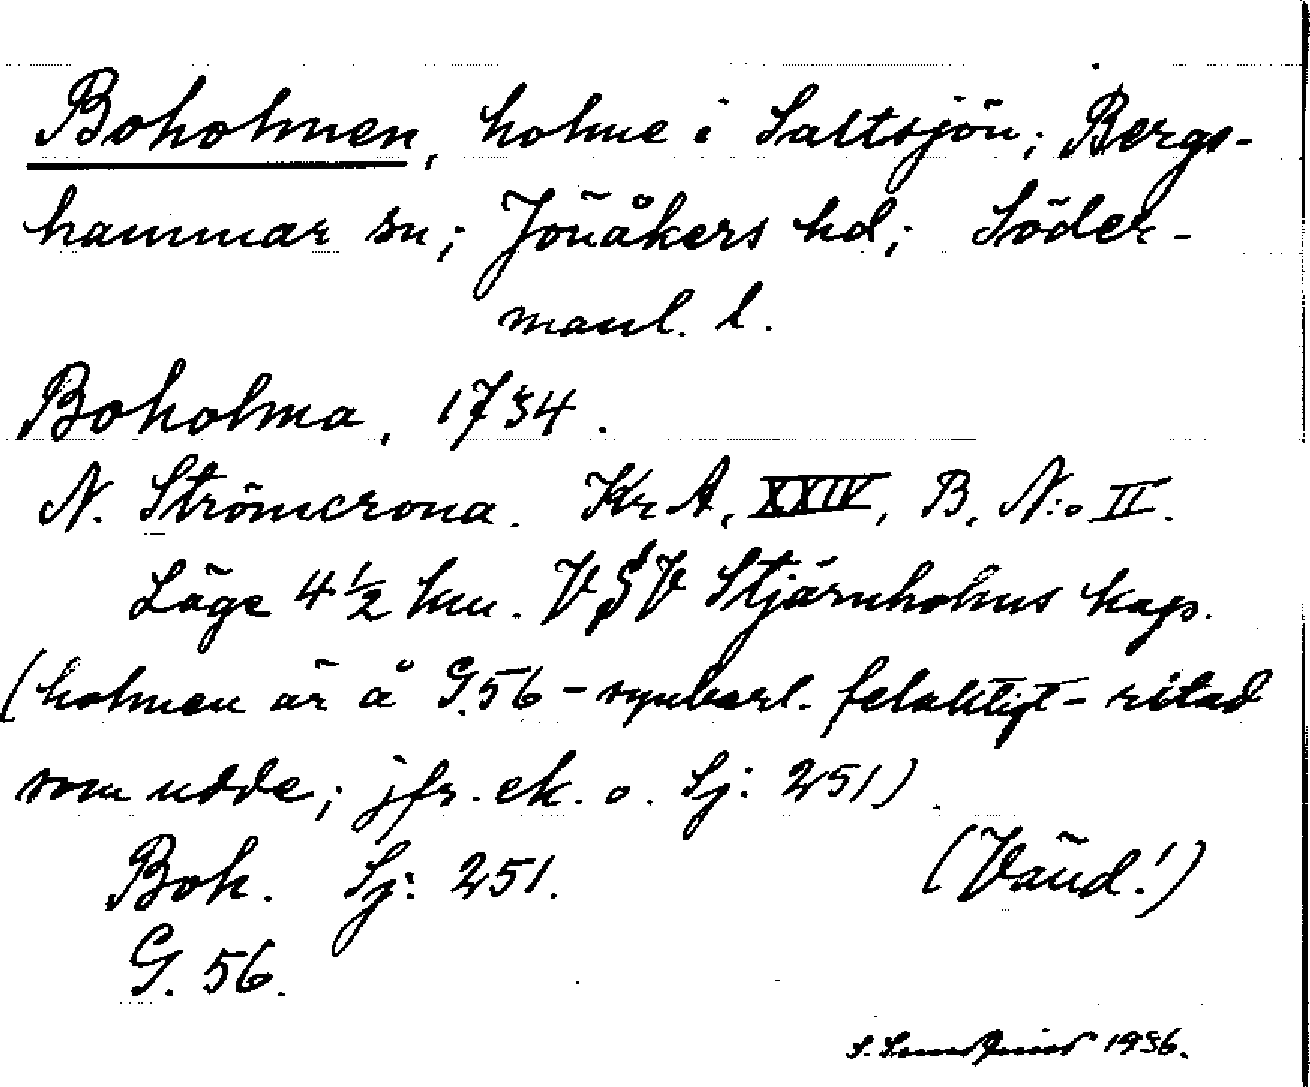 Boholmen, holme i Saltsjön; Bergs-
hammar sn; Jönåkers hd; Söder-
manl. l.
Boholma, 1734.
N. Strömcrona. Kr A, XXIV, B. N:o II.
Läge 4 1/2 km. V S V Stjärnholms kap.
(holmen är å G.56 – synbarl. felaktigt – ritad
som udde; jfr. ek. o. Sj: 251)
Boh. Sj: 251. (Vänd!)
G. 56.
S. 1936.